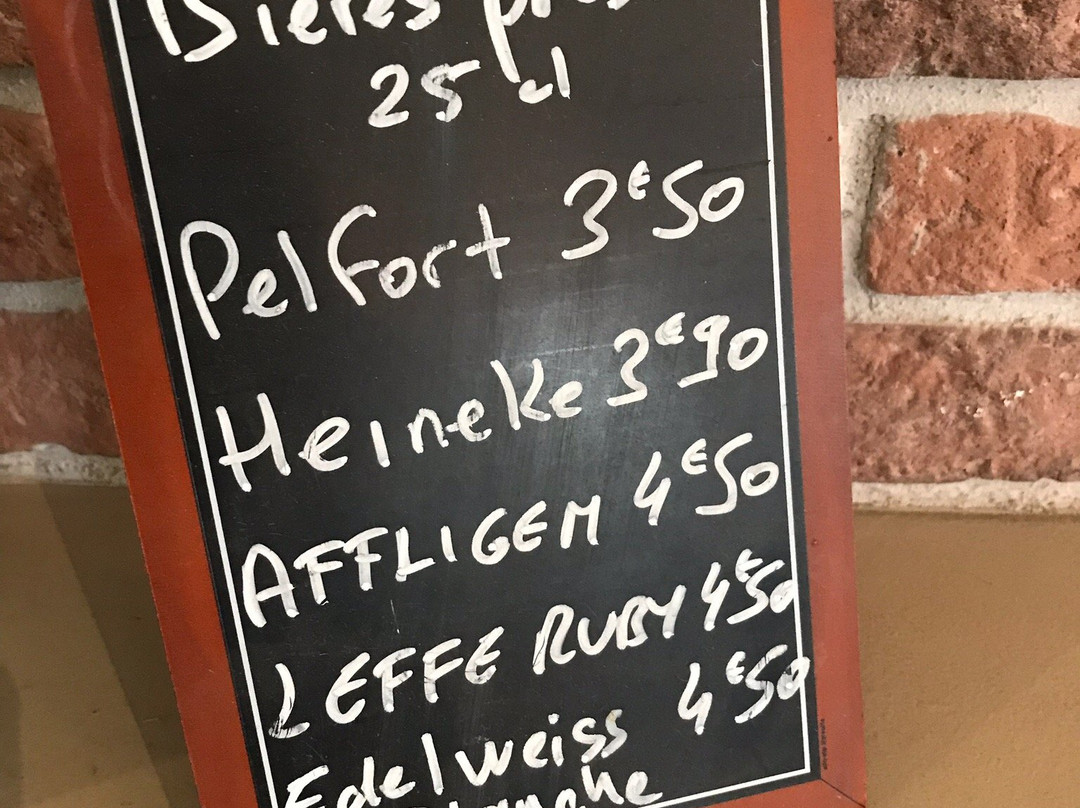 Bières pres
25 cl
Pelfort 3€50
Heineke 3€90
AFFLIGEM 4€50
LEFFE RUBY 4€50
Edelweiss 4€50
blanche